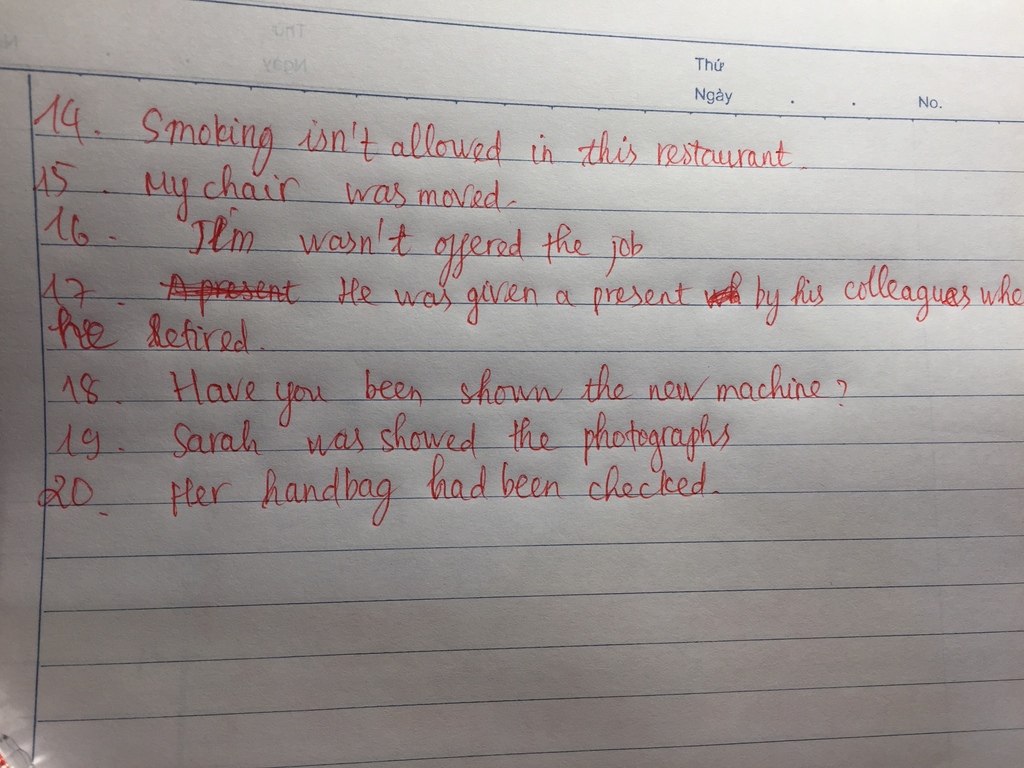 Thứ
Ngày . . No.
14. Smoking isn't allowed in this restaurant
15. My chair was moved.
16. wasn't offered the job
17. A present He was given a present by his colleagues whe
he retired.
18. Have you been shown the new machine?
19. Sarah was showed the photographs
20. Her handbag had been checked.